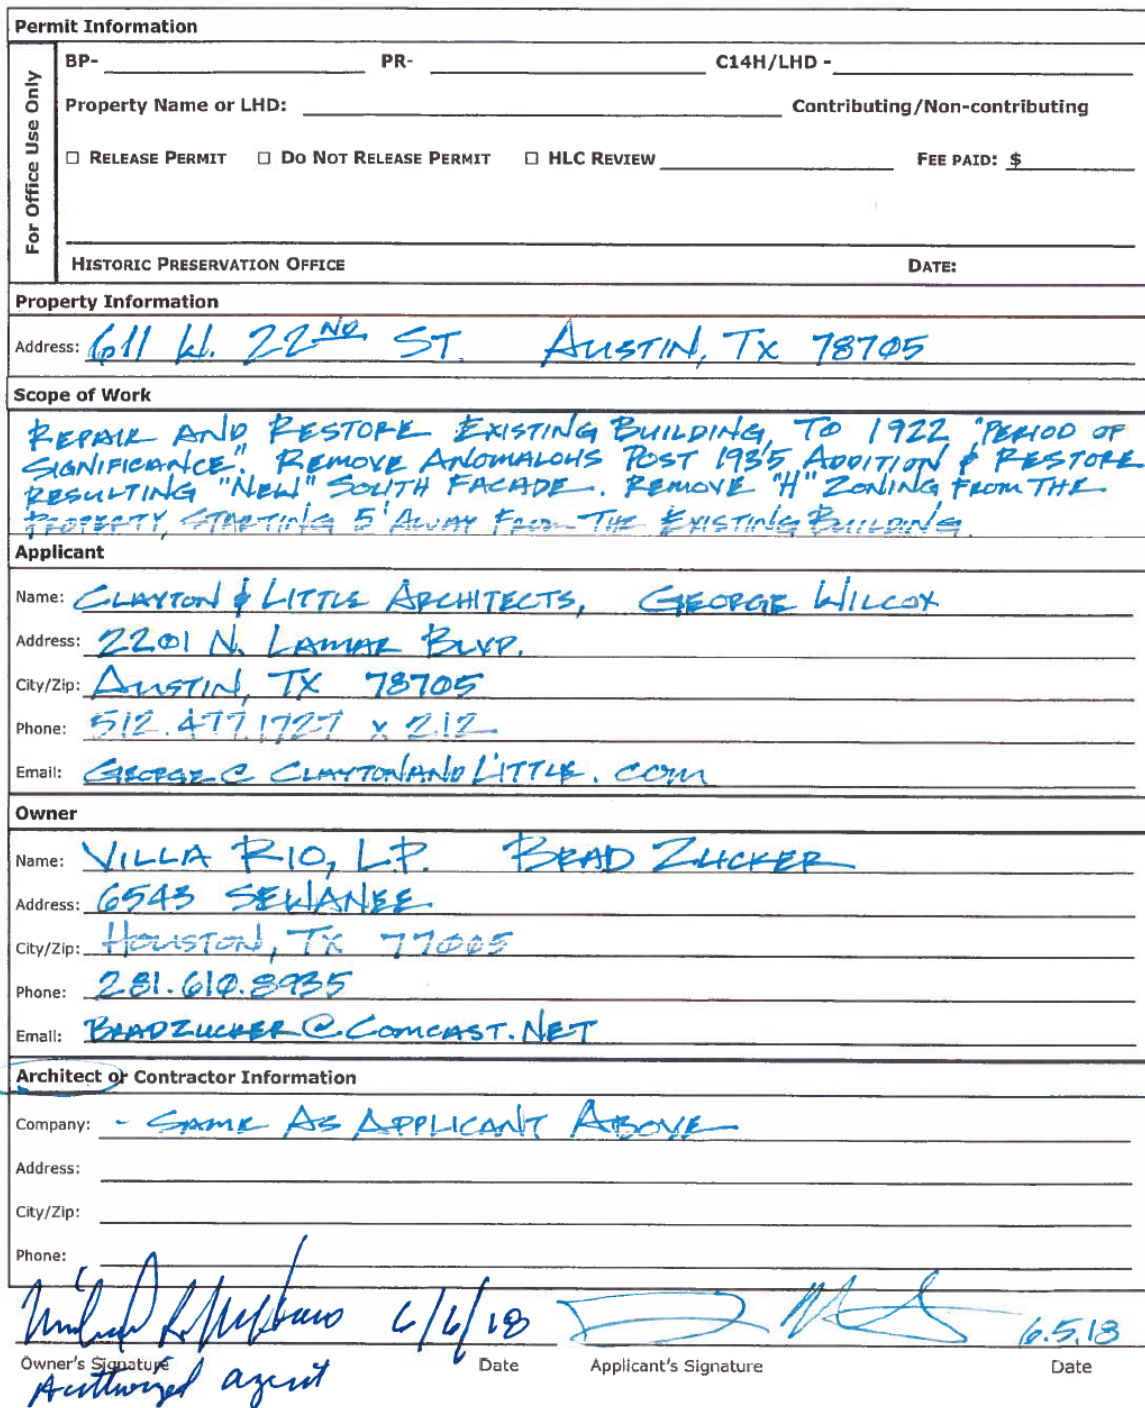 Permit Information
For Office Use Only
BP- PR- C14H/LHD -
Property Name or LHD: Contributing/Non-contributing
☐ RELEASE PERMIT ☐ DO NOT RELEASE PERMIT ☐ HLC REVIEW FEE PAID: $
HISTORIC PRESERVATION OFFICE DATE:
Property Information
Address: 611 W. 22ND ST. AUSTIN, TX 78705
Scope of Work
REPAIR AND RESTORE EXISTING BUILDING, TO 1922 "PERIOD OF
SIGNIFICANCE". REMOVE ANOMALOUS POST 1935 ADDITION & RESTORE
RESULTING "NEW" SOUTH FACADE. REMOVE "H" ZONING FROM THE
PROPERTY, STARTING 5' AWAY FROM THE EXISTING BUILDING.
Applicant
Name: CLAYTON & LITTLE ARCHITECTS, GEORGE WILCOX
Address: 2201 N. LAMAR BLVD.
City/Zip: AUSTIN, TX 78705
Phone: 512.477.1727 x 212
Email: GEORGE@CLAYTONANDLITTLE.COM
Owner
Name: VILLA RIO, L.P. BRAD ZUCKER
Address: 6543 SEWANEE
City/Zip: HOUSTON, TX 77005
Phone: 281.610.8935
Email: BRADZUCKER@COMCAST.NET
Architect or Contractor Information
Company: - SAME AS APPLICANT ABOVE
Address:
City/Zip:
Phone:
6/6/18 6.5.18
Owner's Signature Date Applicant's Signature Date
Authorized agent